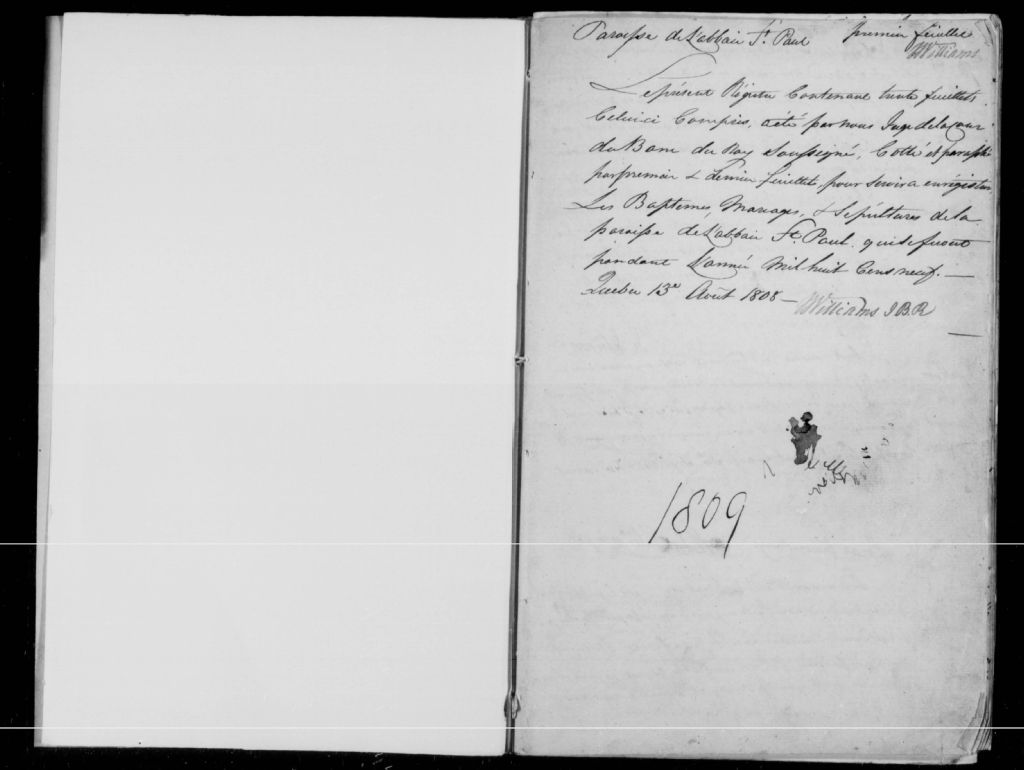 Paroisse de L'abbaie St. Paul premier feuillet
Williams
Le présent Régistre Contenant trente feuillets
Celui ci Compris, a été par nous Juge de la Cour
du Banc du Roy Soussigné, Cotté et paraphé
par premier & dernier feuillet, pour servir a enrégistrer
Les Baptemes, Mariages, & Sépultures de la
paroisse de L'abbaie St. Paul qui se feront
pendant L'année Mil huit Cens neuf. —
Quebec 13e Août 1808 — Williams J B R
1809